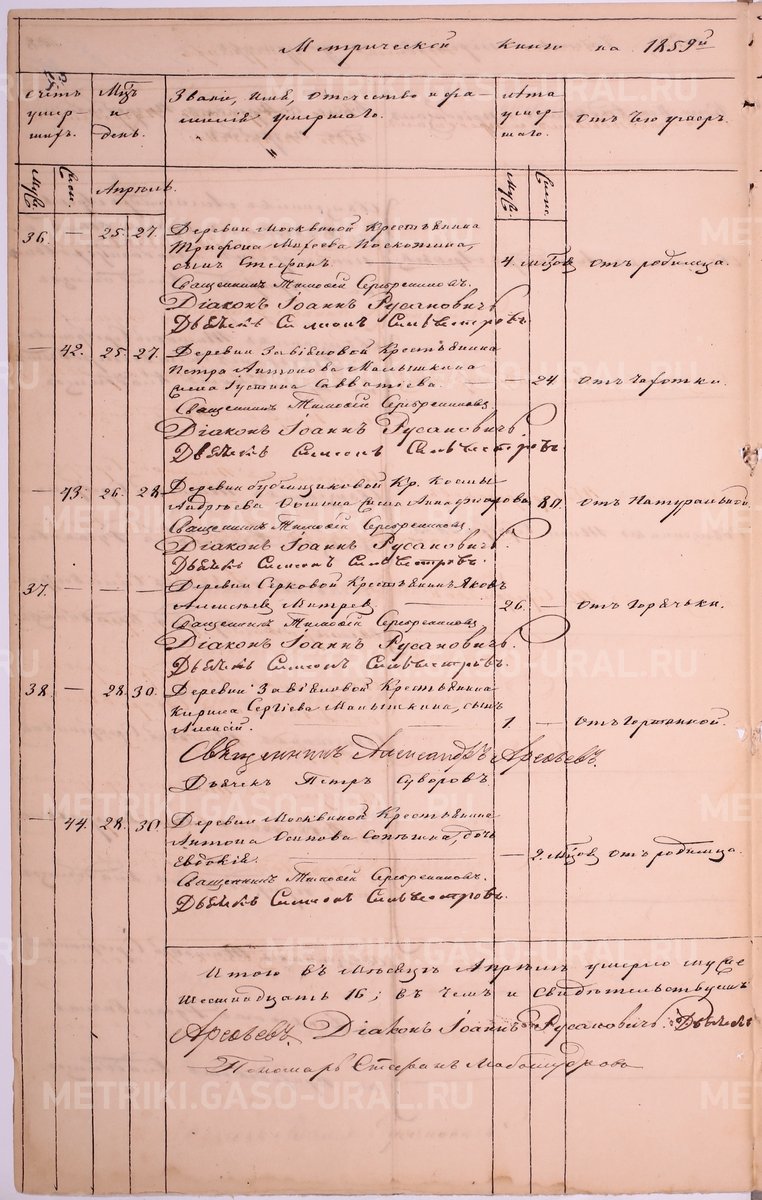 Метрической книги на 1859й
Счётъ умер- шихъ.
Мцъ и день.
Званіе, имя, отечество и фа-
милія умершаго.
лѣта умер- шаго.
Отъ чего умеръ.
Муж. Жен. Апрѣль. Муж. Жен.
36. — 25. 27. Деревни Москвиной Крестьянина
Трифона
сынъ Стефанъ. 4. мѣсяц. Отъ родимца.
Священникъ Тимофей Серебренниковъ.
Діаконъ Іоаннъ Русановичъ.
Дьячекъ Симеонъ Сильвестровъ.
— 42. 25. 27. Деревни Крестьянина
Петра Антонова Малышкина
жена Іустина Савватіева. — 24. Отъ чахотки.
Священникъ Тимофей Серебренниковъ.
Діаконъ Іоаннъ Русановичъ.
Дьячекъ Симеонъ Сильвестровъ.
— 43. 26. 28. Деревни Кр. Космы
Андреева — 80. Отъ Натуральной.
Священникъ Тимофей Серебренниковъ.
Діаконъ Іоаннъ Русановичъ.
Дьячекъ Симеонъ Сильвестровъ.
37. — — — Деревни Серковой Крестьянинъ Яковъ
Алексѣевъ 26. — Отъ Горячки.
Священникъ Тимофей Серебренниковъ.
Діаконъ Іоаннъ Русановичъ.
Дьячекъ Симеонъ Сильвестровъ.
38. — 28. 30. Деревни Крестьянина
Кирила Сергіева Малышкина, сынъ
Алексій. 1. — Отъ Гортанной.
Священникъ Александръ Арефьевъ.
Дьячекъ Петръ Суворовъ.
— 44. 28. 30. Деревни Москвиной Крестьянина
Антона Осипова дочь
Евдокія. — 2. мѣсяц. Отъ родимца.
Священникъ Тимофей Серебренниковъ.
Дьячекъ Симеонъ Сильвестровъ.
Итого въ Мѣсяцѣ Апрѣлѣ умерло
Шестнадцать 16; въ чемъ и свидѣтельствуемъ
Арефьевъ. Діаконъ Іоаннъ Русановичъ. Дьячекъ
Пономарь Стефанъ
METRIKI.GASO-URAL.RU